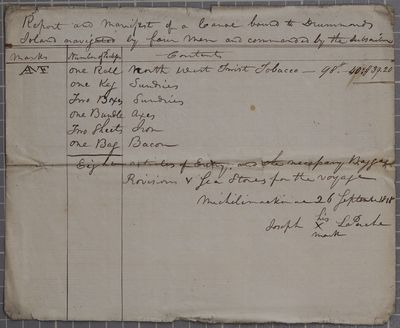 Report and Manifest of a Canoe bound to Drummonds
Island navigated by four Men and commanded by the Subscriber
Marks Number of Pckgs Contents
one Roll North West Twist Tobacco — 98
one Keg Sundries
Two Boxes Sundries
one Bundle Axes
Two Sheets Iron
one Bag Bacon
Eight articles of and the necessary Baggage
Provisions & Sea Stores for the voyage
Michilimackinac 26 September 1818
his
Joseph X LaPerche
mark